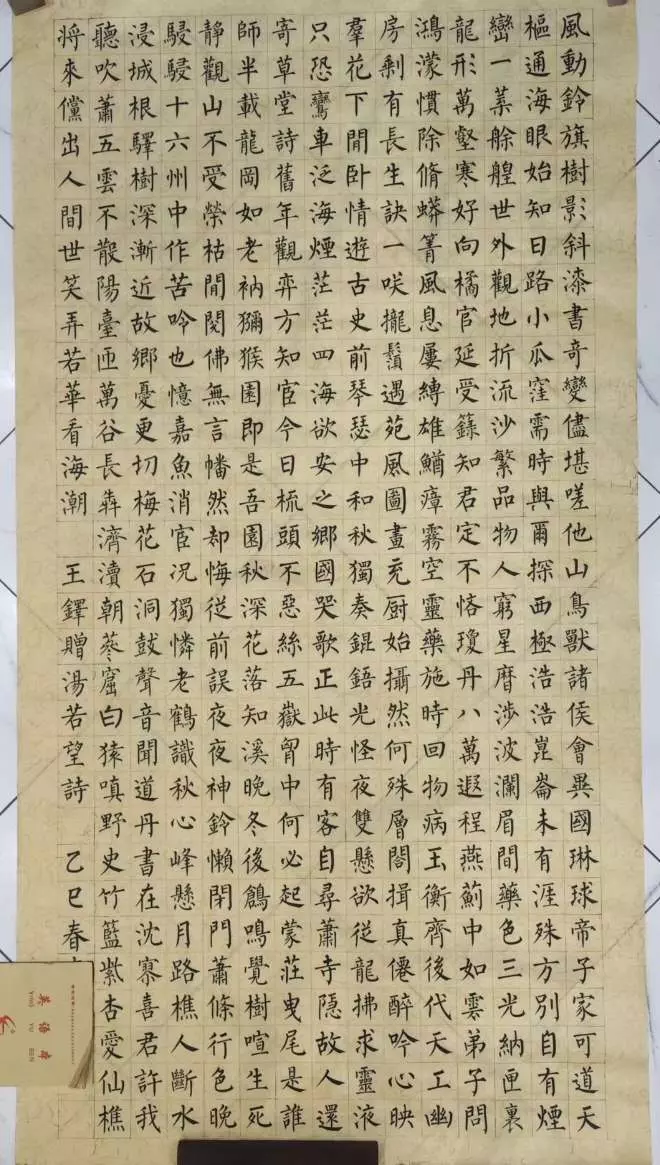 風動鈴旗樹影斜漆書奇變儘堪嗟他山鳥獸諸侯會異國琳球帝子家可道天
樞通海眼始知日路小瓜窪需時與爾探西極浩浩崑崙未有涯殊方別自有煙
巒一葉艅艎世外觀地折流沙繁品物人窮星曆涉波瀾眉間藥色三光納匣裏
龍形萬壑寒好向橘官延受籙知君定不悋瓊丹八萬遐程燕薊中如雲弟子問
鴻濛慣除脩蟒箐風息屢縛雄鰌瘴霧空靈藥施時回物病玉衡齊後代天工幽
房剩有長生訣一咲攏鬚遇苑風圖畫充厨始攝然何殊層閣揖真僊醉吟心映
羣花下閒卧情遊古史前琴瑟中和秋獨奏錕鋙光怪夜雙懸欲從龍拂求靈液
只恐鸞車泛海煙茫茫四海欲安之鄉國哭歌正此時有客自尋蕭寺隱故人還
寄草堂詩舊年觀弈方知宦今日梳頭不惡絲五嶽胷中何必起蒙莊曳尾是誰
師半載龍岡如老衲獼猴園即是吾園秋深花落知溪晚冬後鷂鳴覺樹喧生死
靜觀山不受榮枯閒閱佛無言幡然却悔從前誤夜夜神鈴懶閉門蕭條行色晚
駸駸十六州中作苦吟也憶嘉魚消宦況獨憐老鶴識秋心峰懸月路樵人斷水
浸城根驛樹深漸近故鄉憂更切梅花石洞鼓聲音聞道丹書在沈寨喜君許我
聽吹蕭五雲不散陽臺匝萬谷長犇濟瀆朝蔘窟白猿嗔野史竹籃紫杏愛仙樵
將來儻出人間世笑弄若華看海潮
王鐸贈湯若望詩
乙巳春
英語本
YING YU BEN